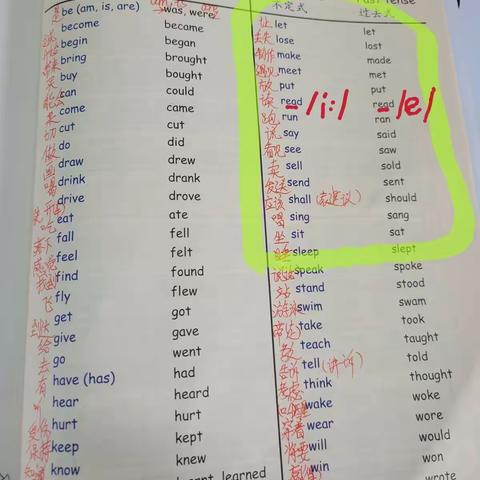 be (am, is, are) was, were
become became
begin began
bring brought
买 buy bought
can could
来 come came
切 cut cut
做 do did
画 draw drew
喝 drink drank
drive drove
吃 eat ate
fall fell
感觉 feel felt
找到 find found
飞 fly flew
get got
给 give gave
去 go went
有 have (has) had
hear heard
受伤 hurt hurt
保持 keep kept
知道 know knew
learned
不定式 过去式
让 let let
丢失 lose lost
制作 make made
遇见 meet met
放 put put
读 read -/i:/ read -/e/
跑 run ran
说 say said
看见 see saw
卖 sell sold
发送 send sent
应该 shall (表建议) should
唱 sing sang
坐 sit sat
睡 sleep slept
谈话 speak spoke
站 stand stood
游泳 swim swam
带走 take took
教 teach taught
告诉 tell (讲诉) told
考虑 think thought
wake woke
穿着 wear wore
将要 will would
win won
wrote